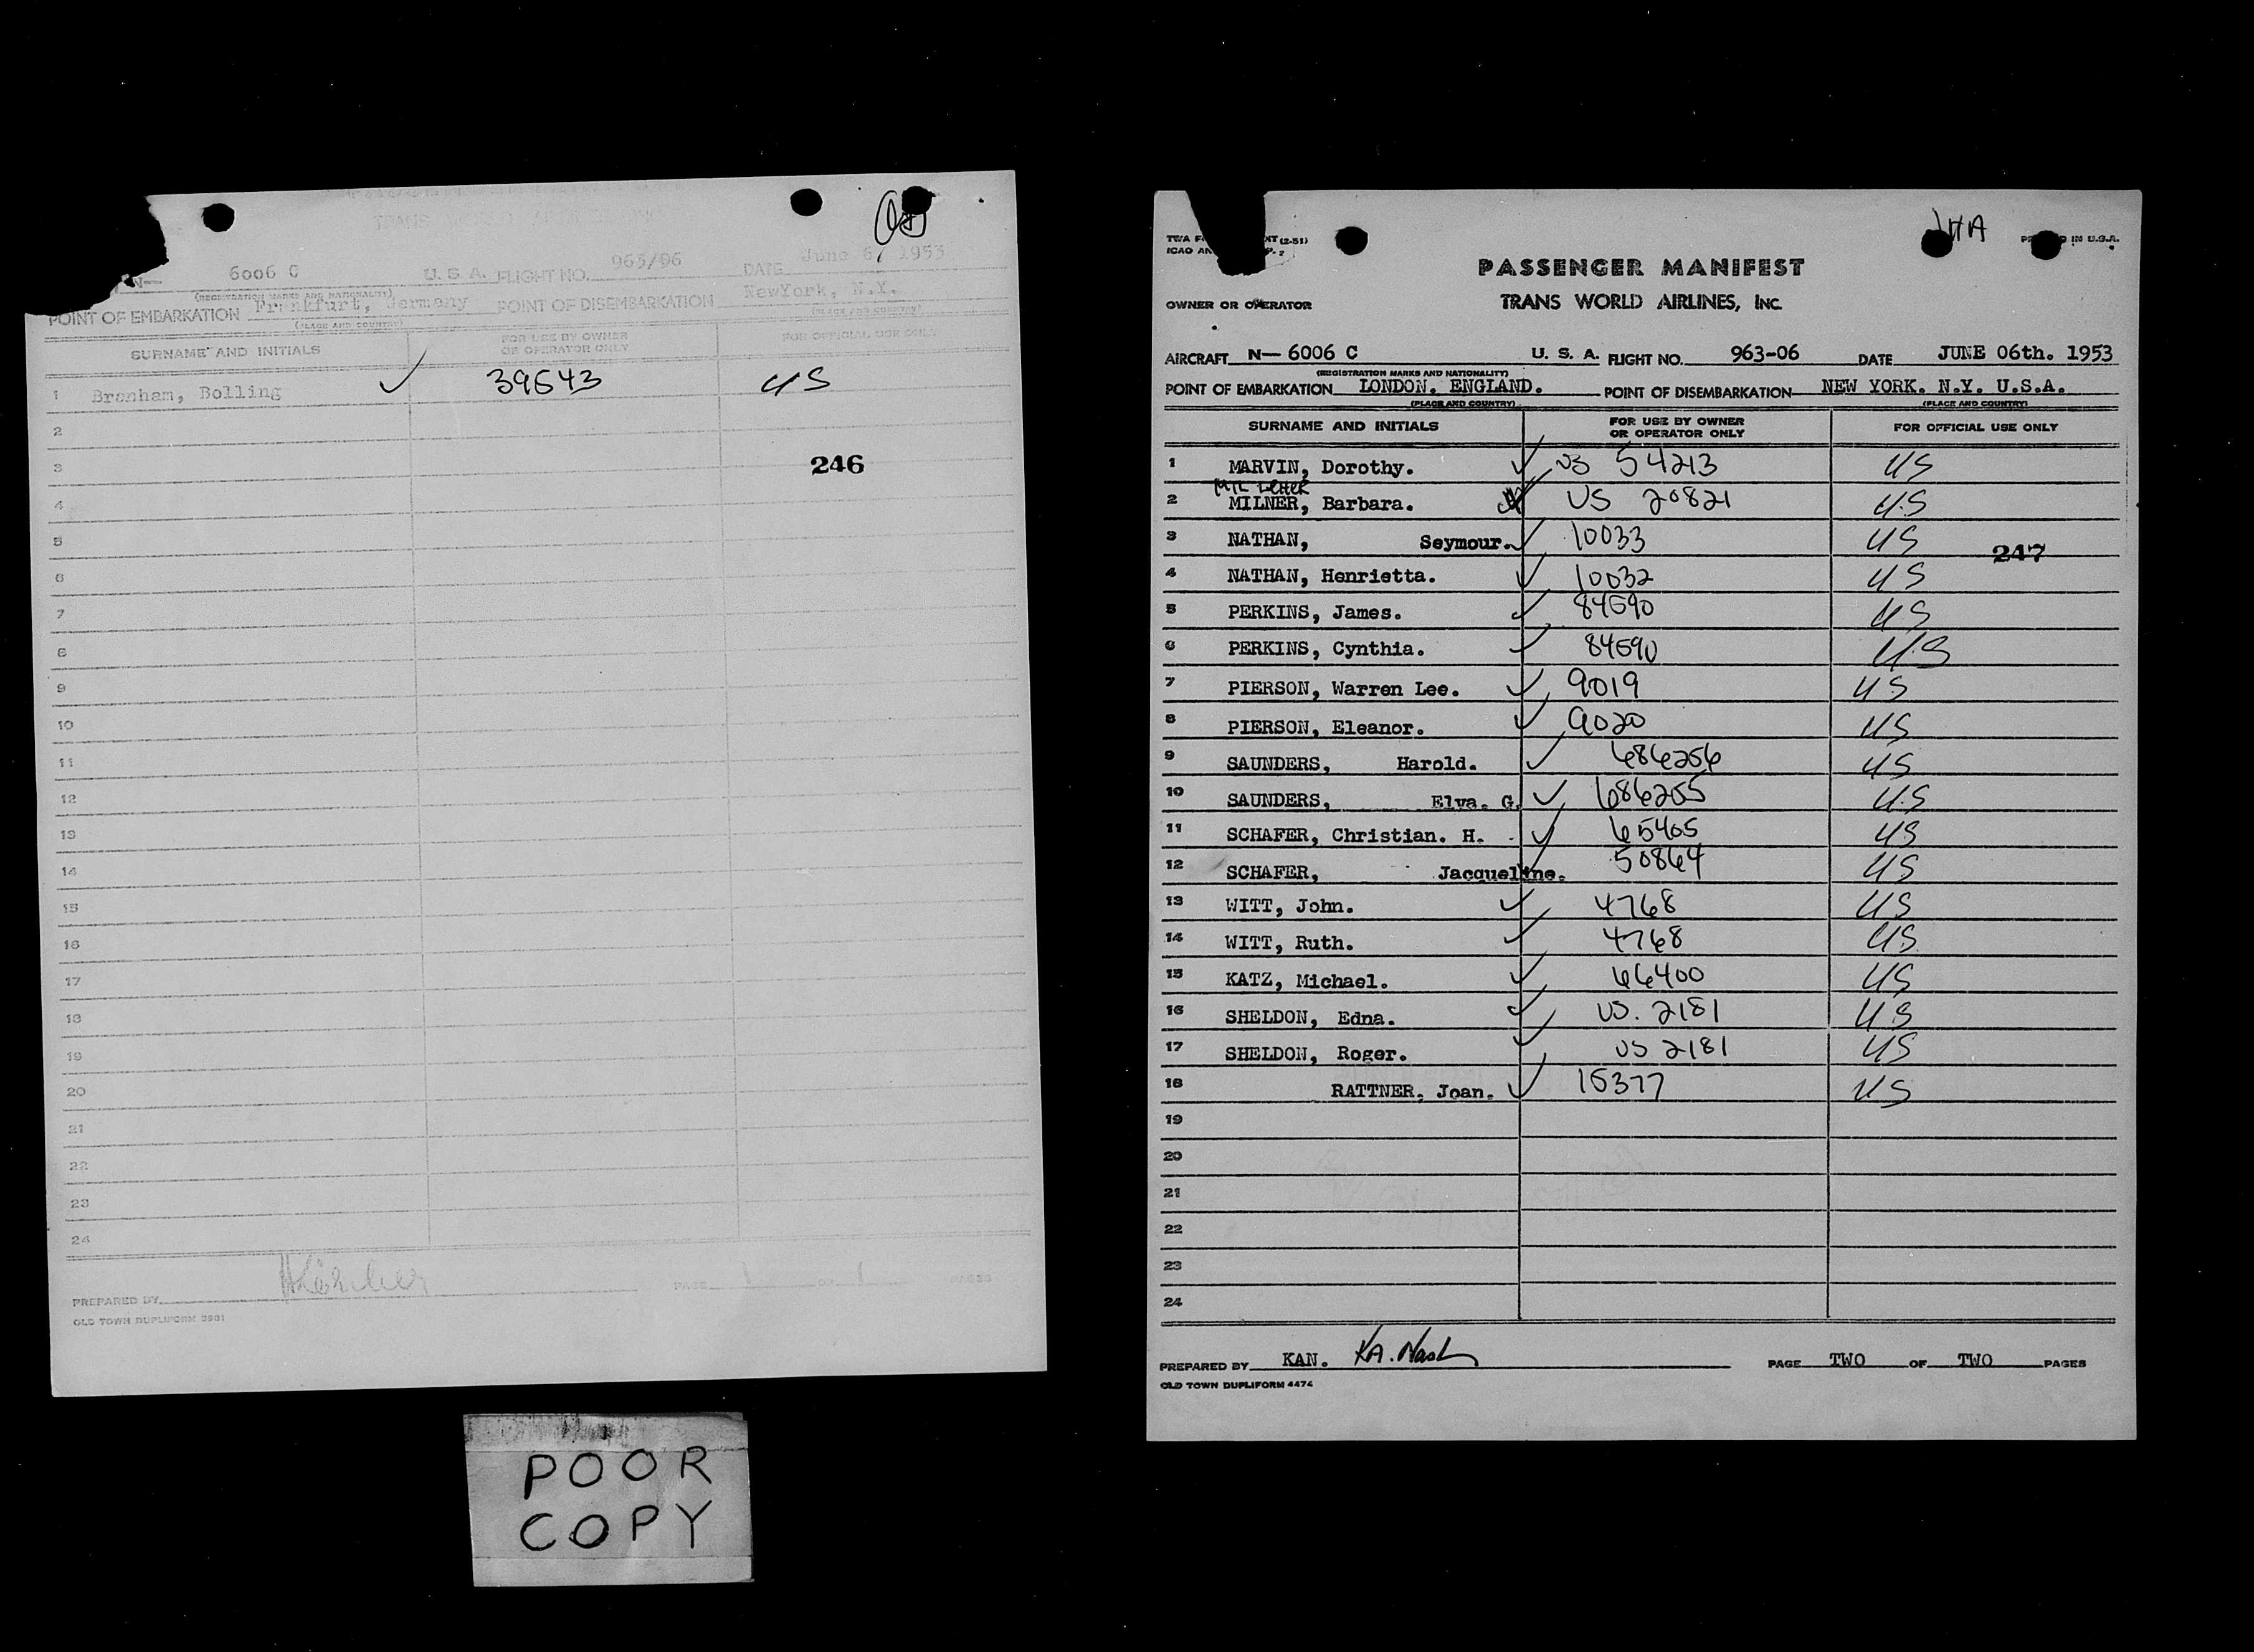 TRANS WORLD AIRLINES, INC.
N— 6006 C U. S. A. FLIGHT NO. 963/06 DATE June 6/ 1953
(REGISTRATION MARKS AND NATIONALITY)
POINT OF EMBARKATION Frankfurt, Germany POINT OF DISEMBARKATION NewYork, N.Y.
(PLACE AND COUNTRY) (PLACE AND COUNTRY)
SURNAME AND INITIALS FOR USE BY OWNER OR OPERATOR ONLY FOR OFFICIAL USE ONLY
1 Branham, Bolling ✓ 39543 US
2
3 246
4
5
6
7
8
9
10
11
12
13
14
15
16
17
18
19
20
21
22
23
24
PREPARED BY PAGE 1 OF 1 PAGES
OLD TOWN DUPLIFORM
POOR
COPY
TWA (2-51)
ICAO
IN U.S.A.
PASSENGER MANIFEST
OWNER OR OPERATOR TRANS WORLD AIRLINES, INC.
AIRCRAFT N— 6006 C U. S. A. FLIGHT NO. 963-06 DATE JUNE 06th. 1953
(REGISTRATION MARKS AND NATIONALITY)
POINT OF EMBARKATION LONDON. ENGLAND. POINT OF DISEMBARKATION NEW YORK. N.Y. U.S.A.
(PLACE AND COUNTRY) (PLACE AND COUNTRY)
SURNAME AND INITIALS FOR USE BY OWNER OR OPERATOR ONLY FOR OFFICIAL USE ONLY
1 MARVIN, Dorothy. ✓ US 54213 US
2 MILNER, Barbara. US 20821 U.S
3 NATHAN, Seymour. ✓ 10033 US 247
4 NATHAN, Henrietta. ✓ 10032 US
5 PERKINS, James. ✓ 84590 US
6 PERKINS, Cynthia. ✓ 84590 US
7 PIERSON, Warren Lee. ✓ 9019 US
8 PIERSON, Eleanor. ✓ 9020 US
9 SAUNDERS, Harold. ✓ 686256 US
10 SAUNDERS, Elva. G. ✓ 686255 U.S
11 SCHAFER, Christian. H. ✓ 65465 US
12 SCHAFER, Jacqueline. ✓ 50864 US
13 WITT, John. ✓ 4768 US
14 WITT, Ruth. ✓ 4768 US
15 KATZ, Michael. ✓ 66400 US
16 SHELDON, Edna. ✓ US. 2181 US
17 SHELDON, Roger. ✓ US 2181 US
18 RATTNER, Joan. ✓ 15377 US
19
20
21
22
23
24
PREPARED BY KAN. KA. Nash PAGE TWO OF TWO PAGES
OLD TOWN DUPLIFORM 4474